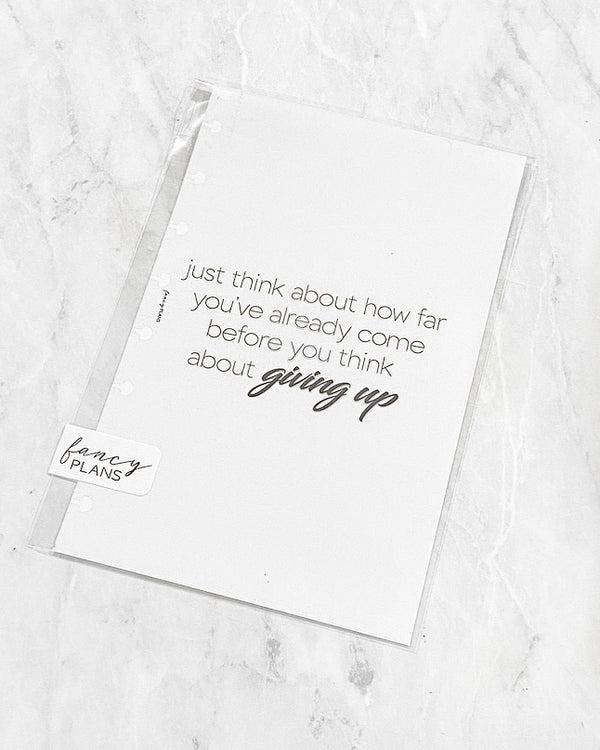 just think about how far
you've already come
before you think
about giving up
fancy
PLANS